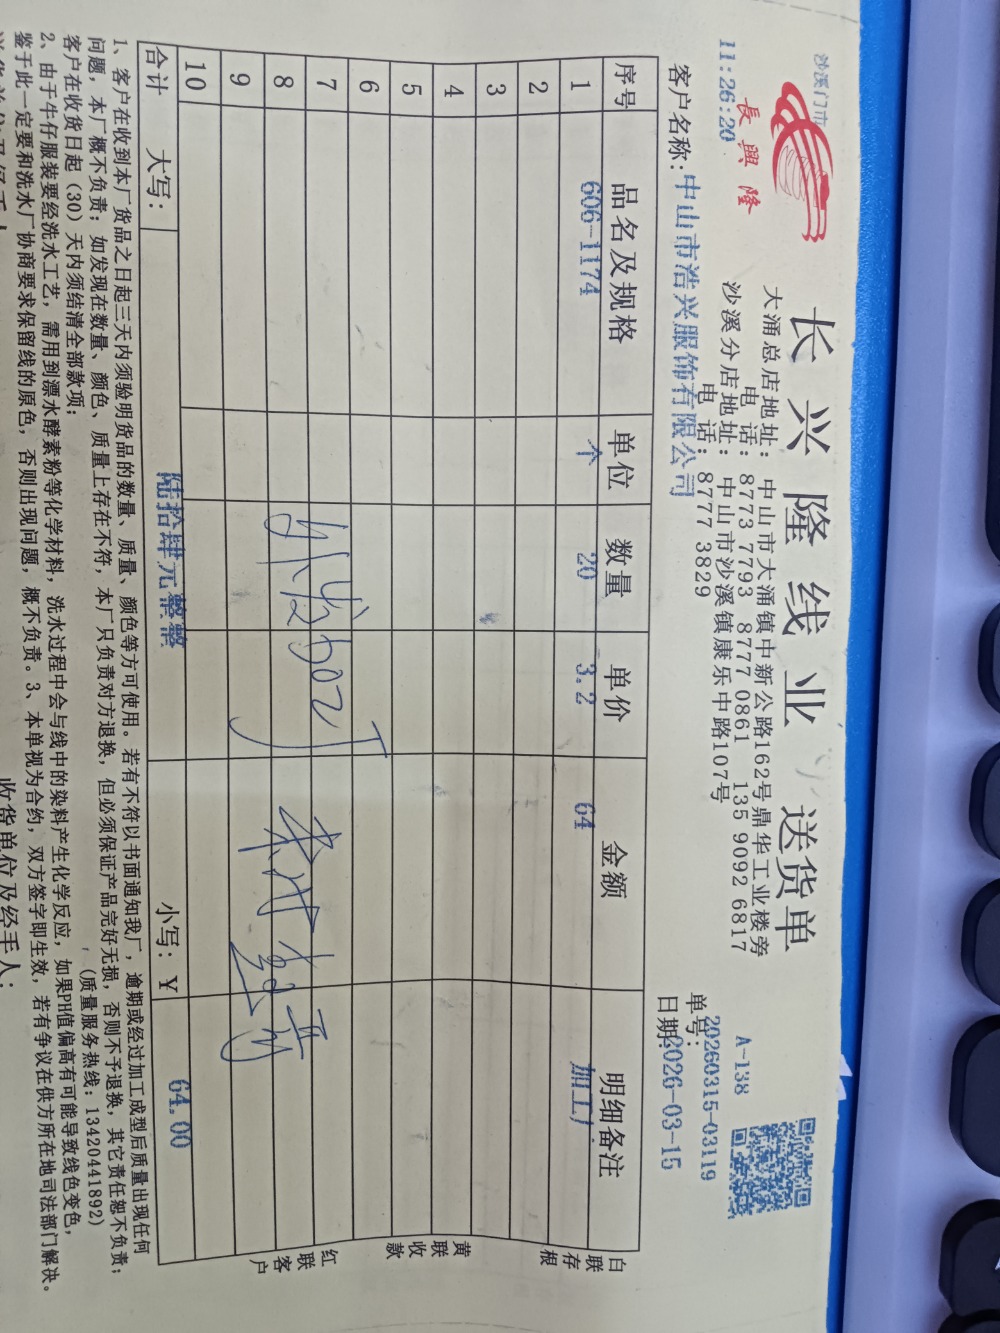 沙溪门市
11:26:20
長興隆
长兴隆线业 送货单
大涌总店地址：中山市大涌镇中新公路162号鼎华工业楼旁
电 话：8773 7793 8777 0861 135 9092 6817
沙溪分店地址：中山市沙溪镇康乐中路107号
电 话：8777 3829
A-138
单号：20260315-03119
客户名称：中山市浩兴服饰有限公司
日期：2026-03-15
序号 品名及规格 单位 数量 单价 金额 明细备注
1 606-1174 个 20 3.2 64 加工厂
2
3
4
5
6
7
8
9
10
合计 大写： 陆拾肆元整整 小写：￥ 64.00
白联存根
黄联收款
红联客户
1、客户在收到本厂货品之日起三天内须验明货品的数量、质量、颜色等方可使用。若有不符以书面通知我厂，逾期或经过加工成型后质量出现任何
问题，本厂概不负责；如发现在数量、颜色、质量上存在不符，本厂只负责对方退换，但必须保证产品完好无损，否则不予退换，其它责任恕不负责；
客户在收货日起（30）天内须结清全部款项； （质量服务热线：13420441892）
2、由于牛仔服装要经洗水工艺，需用到漂水酵素粉等化学材料，洗水过程中会与线中的染料产生化学反应，如果PH值偏高有可能导致线色变色，
鉴于此一定要和洗水厂协商要求保留线的原色，否则出现问题，概不负责。3、本单视为合约，双方签字即生效，若有争议在供方所在地司法部门解决。
收货单位及经手人：